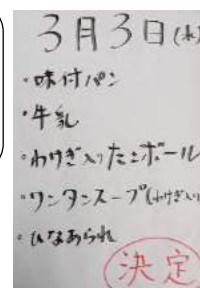 3月3日(水)
・味付パン
・牛乳
・わけぎ入りたこボール
・ワンタンスープ(わけぎ入り
・ひなあられ
決定